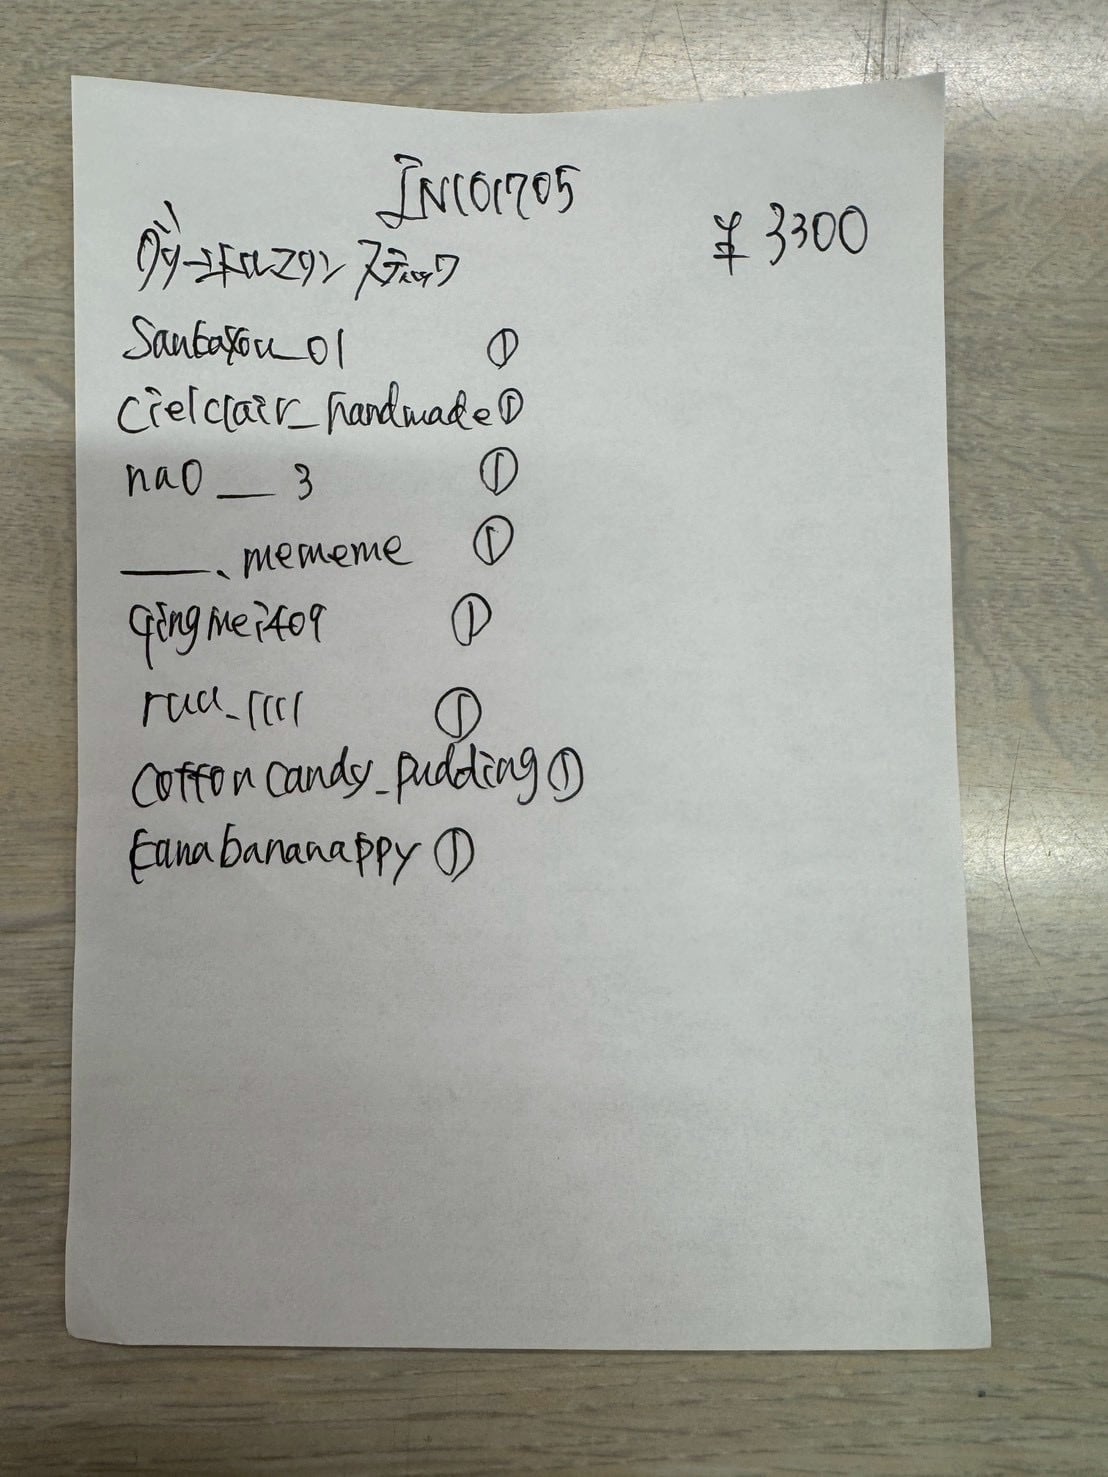 IN101705
¥3300
グリーンドルマタン スティック
Santayou_01 ①
cielclair_handmade ①
na0__3 ①
___.mememe ①
qingmei409 ①
ruu_1111 ①
cottoncandy_pudding ①
tanabananappy ①